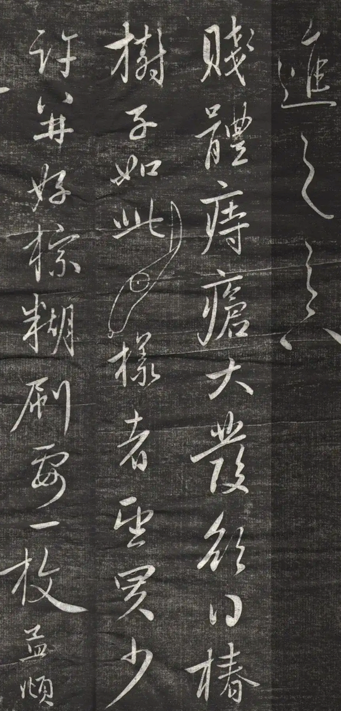 進之
賤體痔瘡大發欲用椿
樹子如此樣者望買少
許并好棕糊刷要一枚孟頫